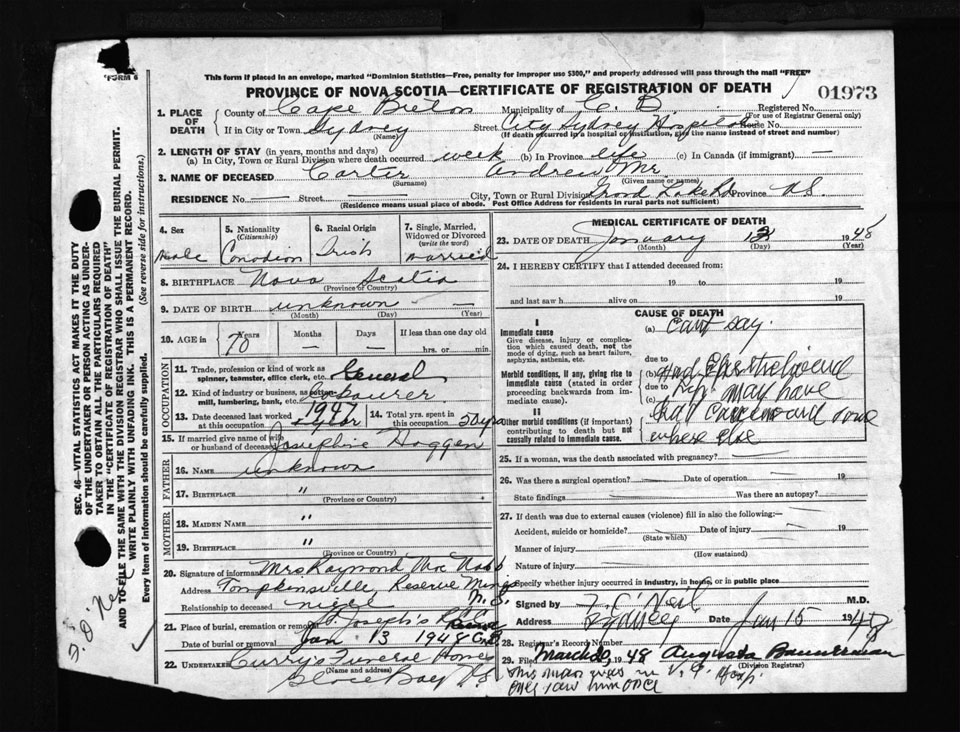 FORM 6
This form if placed in an envelope, marked "Dominion Statistics—Free, penalty for improper use $300," and properly addressed will pass through the mail "FREE"
PROVINCE OF NOVA SCOTIA—CERTIFICATE OF REGISTRATION OF DEATH
01973
1. PLACE OF DEATH County of Cape Breton Municipality of C. B Registered No.
(For use of Registrar General only)
If in City or Town Sydney Street City Sydney Hospital House No.
(Name) (If death occurred in a hospital or institution, give the name instead of street and number)
2. LENGTH OF STAY (in years, months and days)
(a) In City, Town or Rural Division where death occurred week (b) In Province life (c) In Canada (if immigrant) —
3. NAME OF DECEASED Carter Andrew Mr
(Surname) (Given name or names)
RESIDENCE No. — Street City, Town or Rural Division Grand Lake Rd Province N.S.
(Residence means usual place of abode. Post Office Address for residents in rural parts not sufficient)
4. Sex
Male
5. Nationality (Citizenship)
Canadian
6. Racial Origin
Irish
7. Single, Married, Widowed or Divorced (write the word)
Married
8. BIRTHPLACE Nova Scotia
(Province or Country)
9. DATE OF BIRTH unknown — —
(Month) (Day) (Year)
10. AGE in 70 Years Months — Days — If less than one day old
hrs. or min.
OCCUPATION
11. Trade, profession or kind of work as spinner, teamster, office clerk, etc. General
12. Kind of industry or business, as cotton-mill, lumbering, bank, etc. Labourer
13. Date deceased last worked at this occupation 1947
14. Total yrs. spent in this occupation 50 yrs
15. If married give name of wife or husband of deceased Josephine Hoggen
FATHER
16. NAME unknown
17. BIRTHPLACE "
(Province or Country)
MOTHER
18. MAIDEN NAME "
19. BIRTHPLACE "
(Province or Country)
20. Signature of informant Mrs Raymond Mc Nabb
Address Tompkinsville, Reserve Mines N.S.
Relationship to deceased niece
21. Place of burial, cremation or removal St. Joseph's
Date of burial or removal Jan 13 1948
22. UNDERTAKER Curry's Funeral Home
(Name and address)
Glace Bay N.S.
MEDICAL CERTIFICATE OF DEATH
23. DATE OF DEATH January 12 1948
(Month) (Day) (Year)
24. I HEREBY CERTIFY that I attended deceased from:
19 to 19
and last saw h alive on 19
CAUSE OF DEATH
I
Immediate cause
Give disease, injury or complication which caused death, not the mode of dying, such as heart failure, asphyxia, asthenia, etc.
(a) can't say.
due to
Morbid conditions, if any, giving rise to immediate cause (stated in order proceeding backwards from immediate cause).
(b) Had
due to
(c) may have
had carcinoma
where else
II
Other morbid conditions (if important) contributing to death but not causally related to immediate cause.
25. If a woman, was the death associated with pregnancy?
26. Was there a surgical operation? Date of operation 19
State findings Was there an autopsy?
27. If death was due to external causes (violence) fill in also the following:
Accident, suicide or homicide? Date of injury 19
(State which)
Manner of injury
(How sustained)
Nature of injury
Specify whether injury occurred in industry, in home, or in public place
Signed by F. O'Neil M.D.
Address Sydney Date Jan 15 1948
28. Registrar's Record Number
29. Filed March 1948 Augusta Bannerman
(Division Registrar)
This man was in Hosp.
only saw him once
SEC. 46—VITAL STATISTICS ACT MAKES IT THE DUTY
OF THE UNDERTAKER OR PERSON ACTING AS UNDERTAKER TO OBTAIN ALL THE PARTICULARS REQUIRED
IN THE "CERTIFICATE OF REGISTRATION OF DEATH"
AND TO FILE THE SAME WITH THE DIVISION REGISTRAR WHO SHALL ISSUE THE BURIAL PERMIT.
WRITE PLAINLY WITH UNFADING INK. THIS IS A PERMANENT RECORD.
Every item of information should be carefully supplied. (See reverse side for instructions.)